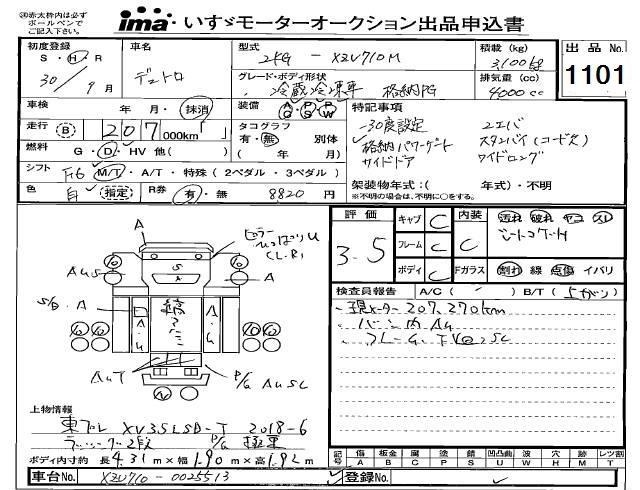 ※赤太枠内は必ずボールペンでご記入下さい。
ima いすゞモーターオークション出品申込書
初度登録 S・H・R 30/9月
車名 デュトロ
型式 2KG - XZU710M
積載(kg) 3,100kg
出品No. 1101
グレード・ボディ形状 冷蔵冷凍車 格納PG
排気量(cc) 4000cc
車検 年・月・抹消
装備 AC PS PW
特記事項
走行 B 207,000km
タコグラフ 有・無 別体 ( 年/ 月)
-30度設定 2エバ
格納パワーゲート スタンバイ(コード欠)
サイドドア ワイドロング
燃料 G・D・HV 他( )
シフト F6 M/T・A/T・特殊(2ペダル・3ペダル)
架装物年式:( 年式)・不明
※不明の場合は、不明に○をする。
色 白 指定 R券 有・無 8820円
評価 3.5
キャブ C
内装 C
汚れ 破れ ヤニ スレ
シートコゲ
フレーム C
ボディ C
Fガラス 割れ 線 点傷 イバリ
検査員報告 A/C( - ) B/T(上がり)
現メーター 207,270km
バン内AU
ピラー
(L.R)
A
AUS
A
S
S/B.A
A・U
A・U
AUT
P/G AUSC
上物情報
東プレ XV35LSD-T 2018-6
ラッシング2段 P/G 極東
ボディ内寸約 長4.31m×幅1.90m×高1.92m
記号 傷A 板金B 腐C 塗P 錆S 凹凸曲U 波W 穴H 跡M レツ割T
車台No. XZU710-0025513
登録No.